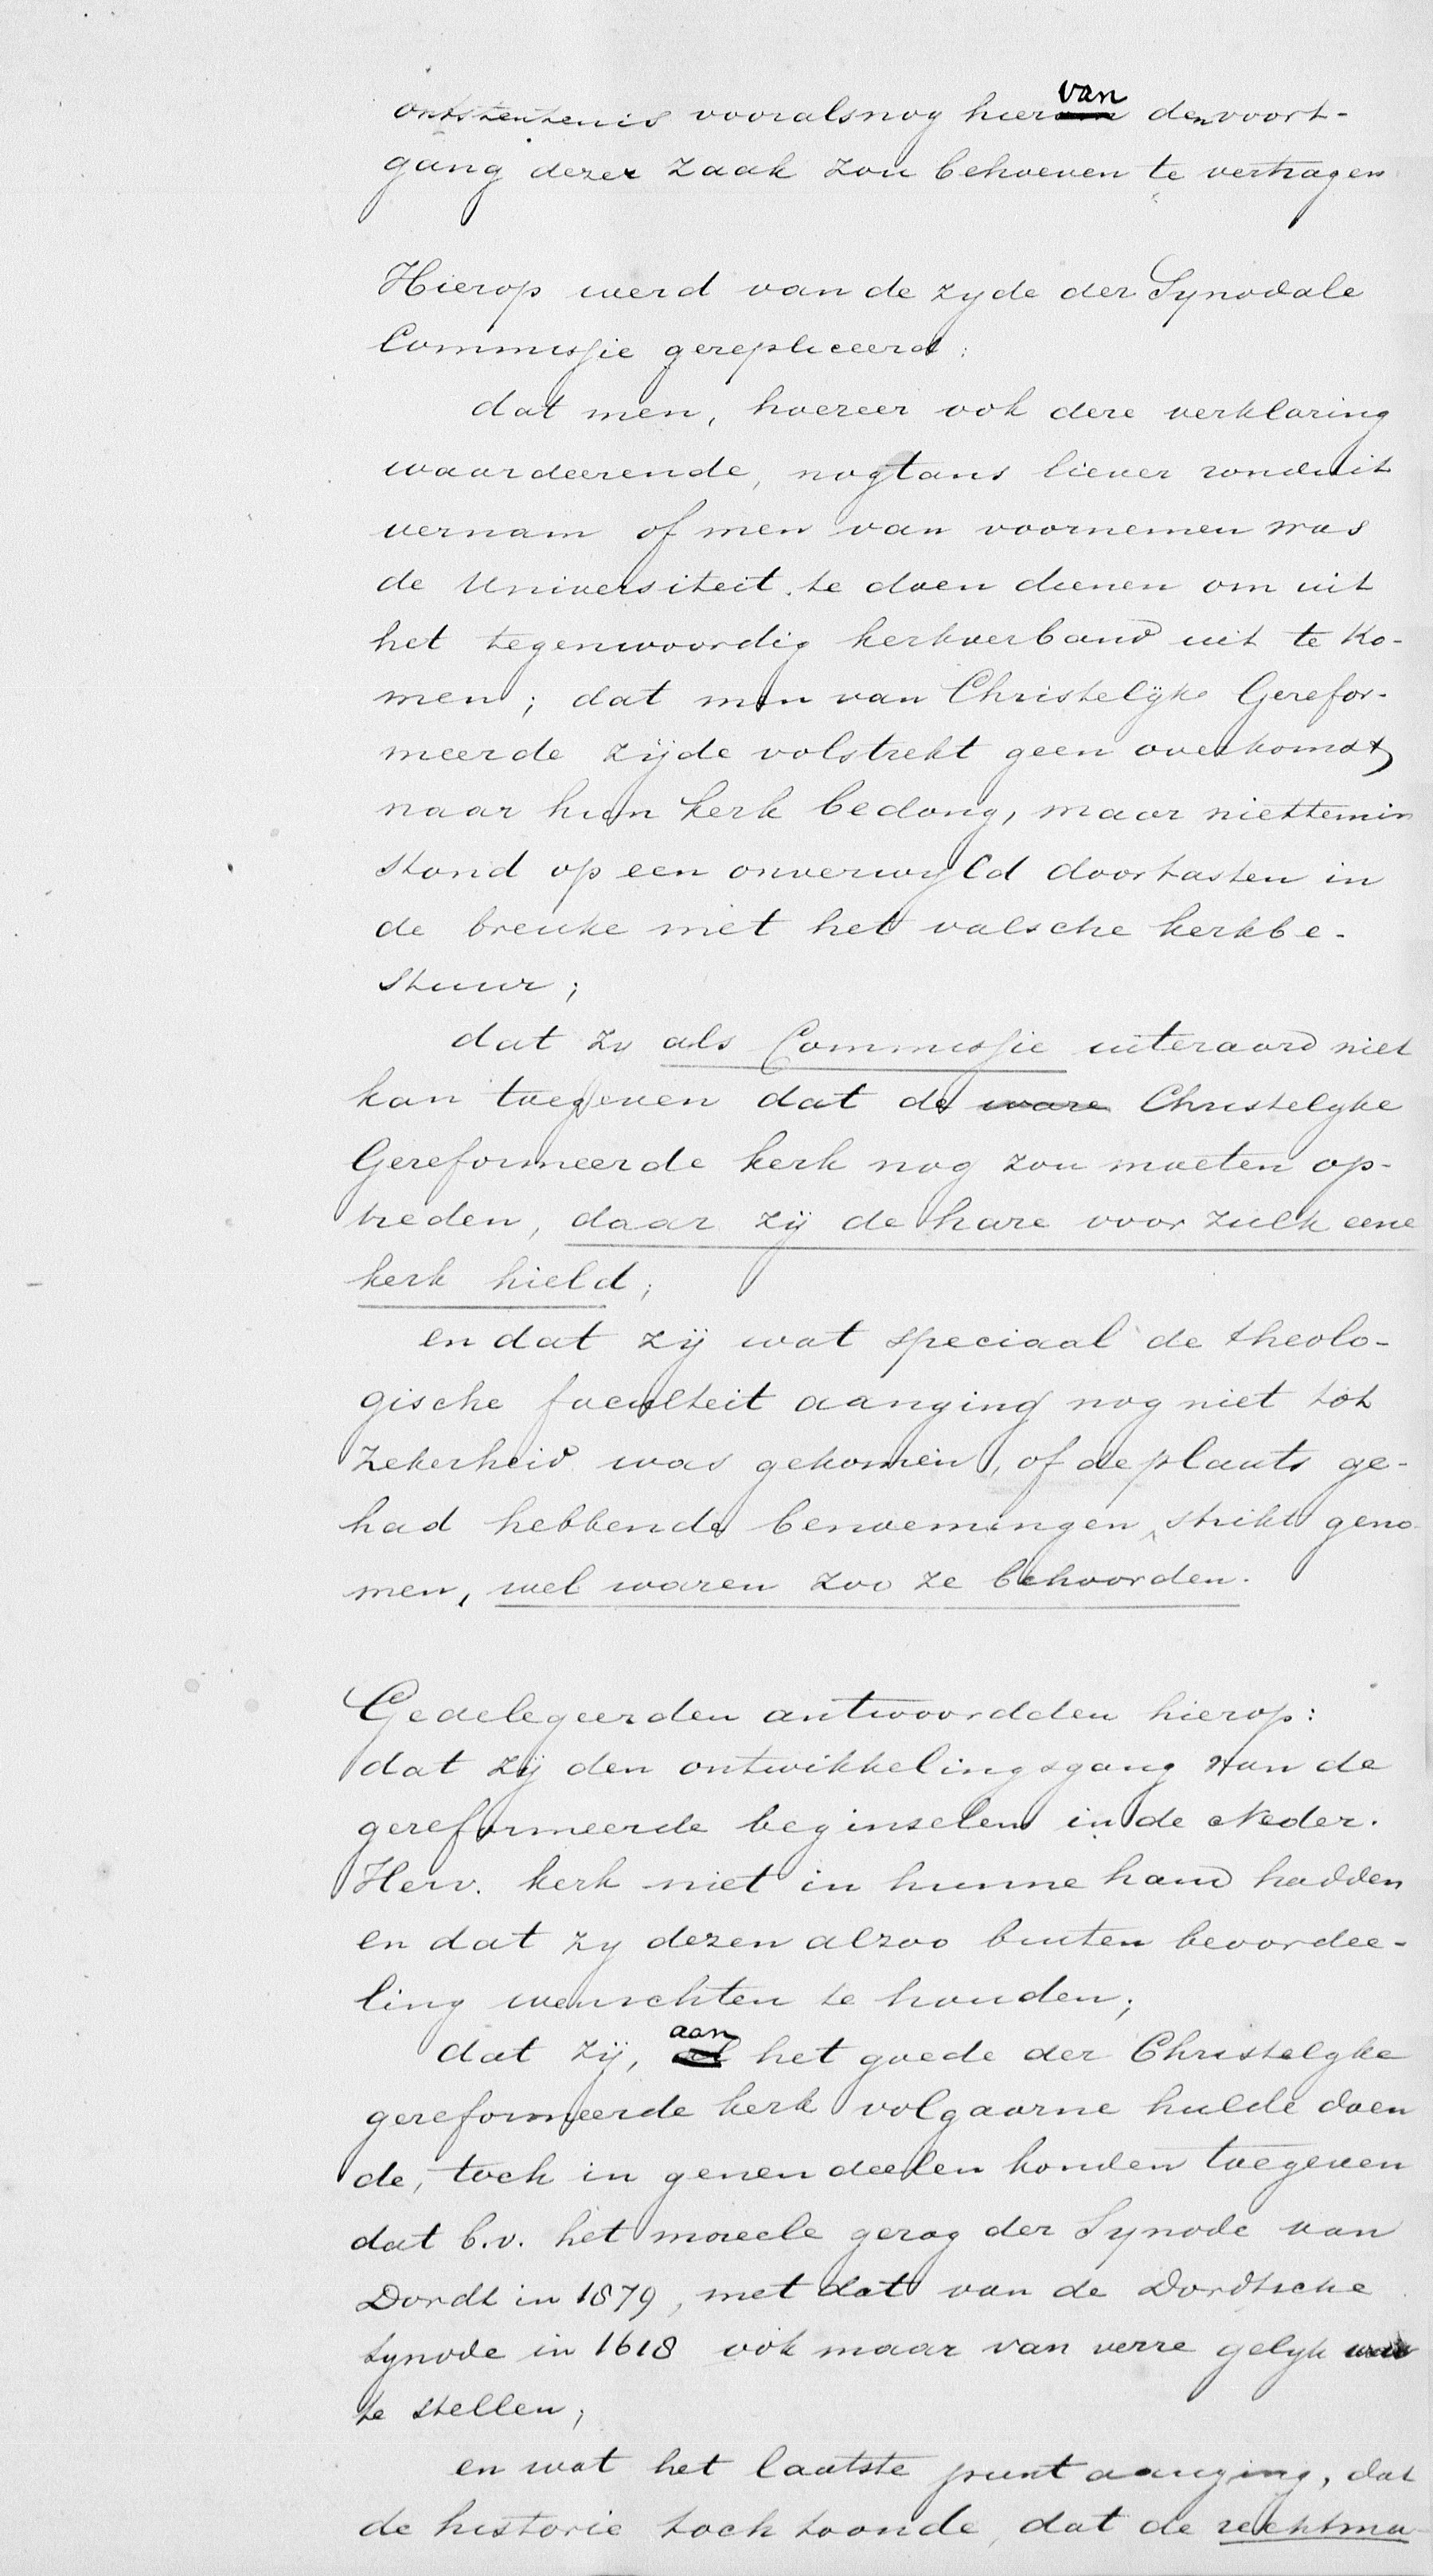 ontstentenis vooralsnog hiervan den voort-
gang dezer zaak zou behoeven te vertragen
Hierop werd van de zyde der Synodale
Commissie gerepliceerd:
dat men, hoezeer ook deze verklaring
waardeerende, nogtans liever ronduit
vernam of men van voornemen was
de Universiteit te doen dienen om uit
het tegenwoordig kerkverband uit te ko-
men; dat men van Christelijke Gerefor-
meerde zijde volstrekt geen overkomst
naar hun kerk bedong, maar niettemin
stond op een onverwyld doortasten in
de breuke met het valsche kerkbe-
stuur;
dat zy als Commissie uiteraard niet
kan toegeven dat de ware Christelyke
Gereformeerde kerk nog zou moeten op-
treden, daar zij de hare voor zulk eene
kerk hield;
en dat zij wat speciaal de theolo-
gische faculteit aanging nog niet tot
zekerheid was gekomen, of de plaats ge-
had hebbende benoemingen, strikt geno
men, wel waren zoo ze behoorden.
Gedelegeerden antwoordden hierop:
dat zij den ontwikkelingsgang van de
gereformeerde beginselen in de Neder.
Herv. kerk niet in hunne hand hadden
en dat zy dezen alzoo buiten beoordee-
ling wenschten te houden;
dat zij, aan het goede der Christelyke
gereformeerde kerk volgaarne hulde doen
de, toch in genen deelen konden toegeven
dat b.v. het moreele gezag der Synode van
Dordt in 1879, met dat van de Dordtsche
synode in 1618 ook maar van verre gelyk was
te stellen;
en wat het laatste punt aanging, dat
de historie toch toonde, dat de rechtma-